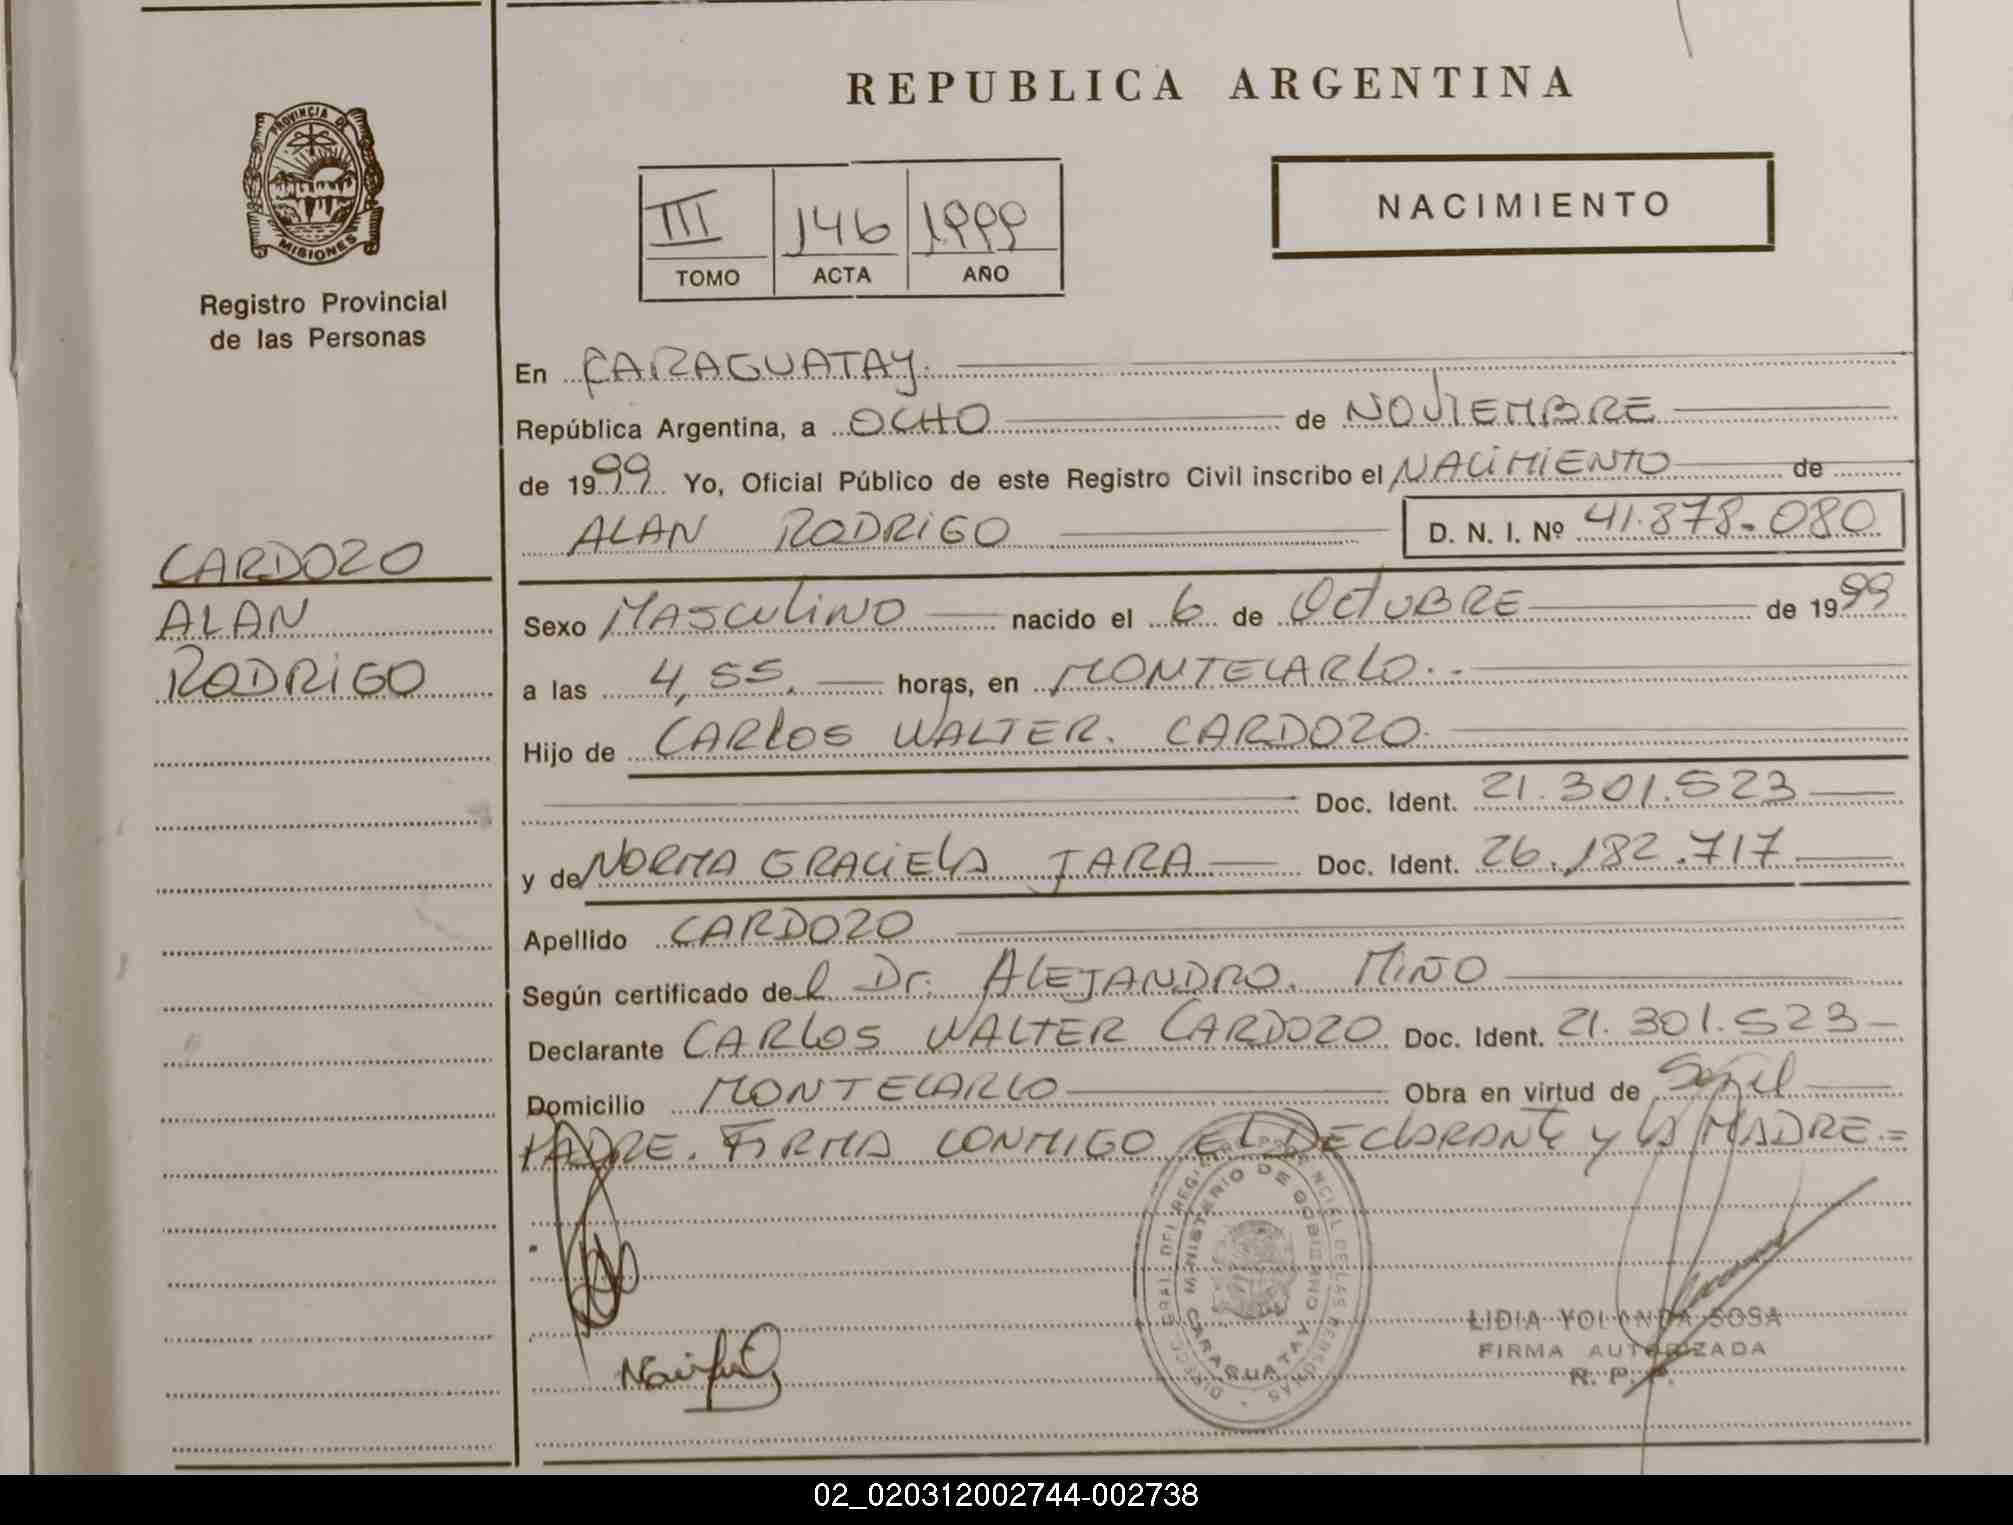 REPUBLICA ARGENTINA
PROVINCIA DE
MISIONES
Registro Provincial
de las Personas
III 146 1999
TOMO ACTA AÑO
NACIMIENTO
En CARAGUATAY.
República Argentina, a OCHO de NOVIEMBRE
de 1999 Yo, Oficial Público de este Registro Civil inscribo el NACIMIENTO de
ALAN RODRIGO D. N. I. Nº 41.878.080
CARDOZO
ALAN
RODRIGO
Sexo MASCULINO nacido el 6 de OCTUBRE de 1999
a las 4,55. horas, en MONTECARLO.-
Hijo de CARLOS WALTER. CARDOZO.
Doc. Ident. 21.301.523
y de NORMA GRACIELA JARA Doc. Ident. 26.182.717
Apellido CARDOZO
Según certificado del Dr. ALEJANDRO. MIÑO
Declarante CARLOS WALTER CARDOZO Doc. Ident. 21.301.523
Domicilio MONTECARLO Obra en virtud de
PADRE. FIRMA CONMIGO EL DECLARANTE Y LA MADRE.=
MINISTERIO DE GOBIERNO
CARAGUATAY
LIDIA YOLANDA SOSA
FIRMA AUTORIZADA
R. P. P.
02_020312002744-002738